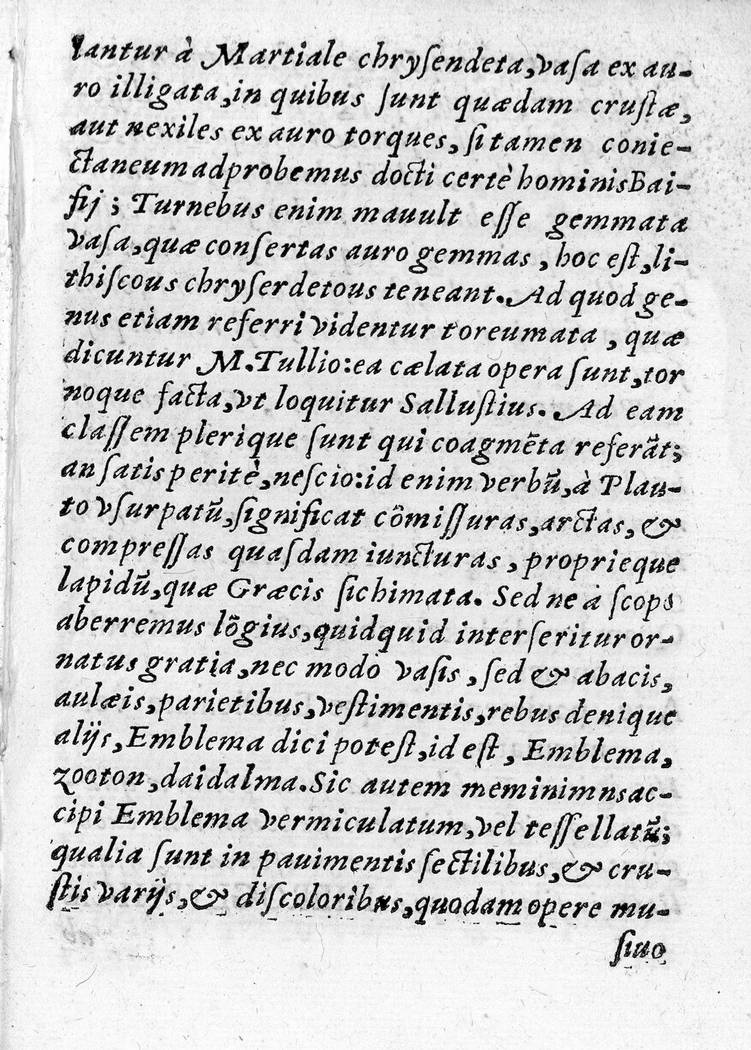 lantur à Martiale chryſendeta, vaſa ex au-
ro illigata, in quibus ſunt quædam cruſtæ,
aut nexiles ex auro torques, ſi tamen conie-
ctaneum adprobemus docti certè hominis Bai-
fij; Turnebus enim mauult eſſe gemmata
vaſa, quæ conſertas auro gemmas, hoc eſt, li-
thiſcous chryſerdetous teneant. Ad quod ge-
nus etiam referri videntur toreumata, quæ
dicuntur M. Tullio: ea cælata opera ſunt, tor
noque facta, vt loquitur Salluſtius. Ad eam
claſſem plerique ſunt qui coagmẽta referãt;
an ſatis peritè, neſcio: id enim verbũ, à Plau-
to vſurpatũ, ſignificat cõmiſſuras, arctas, &
compreſſas quaſdam iuncturas, proprieque
lapidũ, quæ Græcis ſichimata. Sed ne à ſcopo
aberremus lõgius, quidquid interſeritur or-
natus gratia, nec modo vaſis, ſed & abacis,
aulæis, parietibus, veſtimentis, rebus denique
alijs, Emblema dici poteſt, id eſt, Emblema,
zooton, daidalma. Sic autem meminimnsac-
cipi Emblema vermiculatum, vel teſſellatũ;
qualia ſunt in pauimentis ſectilibus, & cru-
ſtis varijs, & diſcoloribus, quodam opere mu-
ſiuo